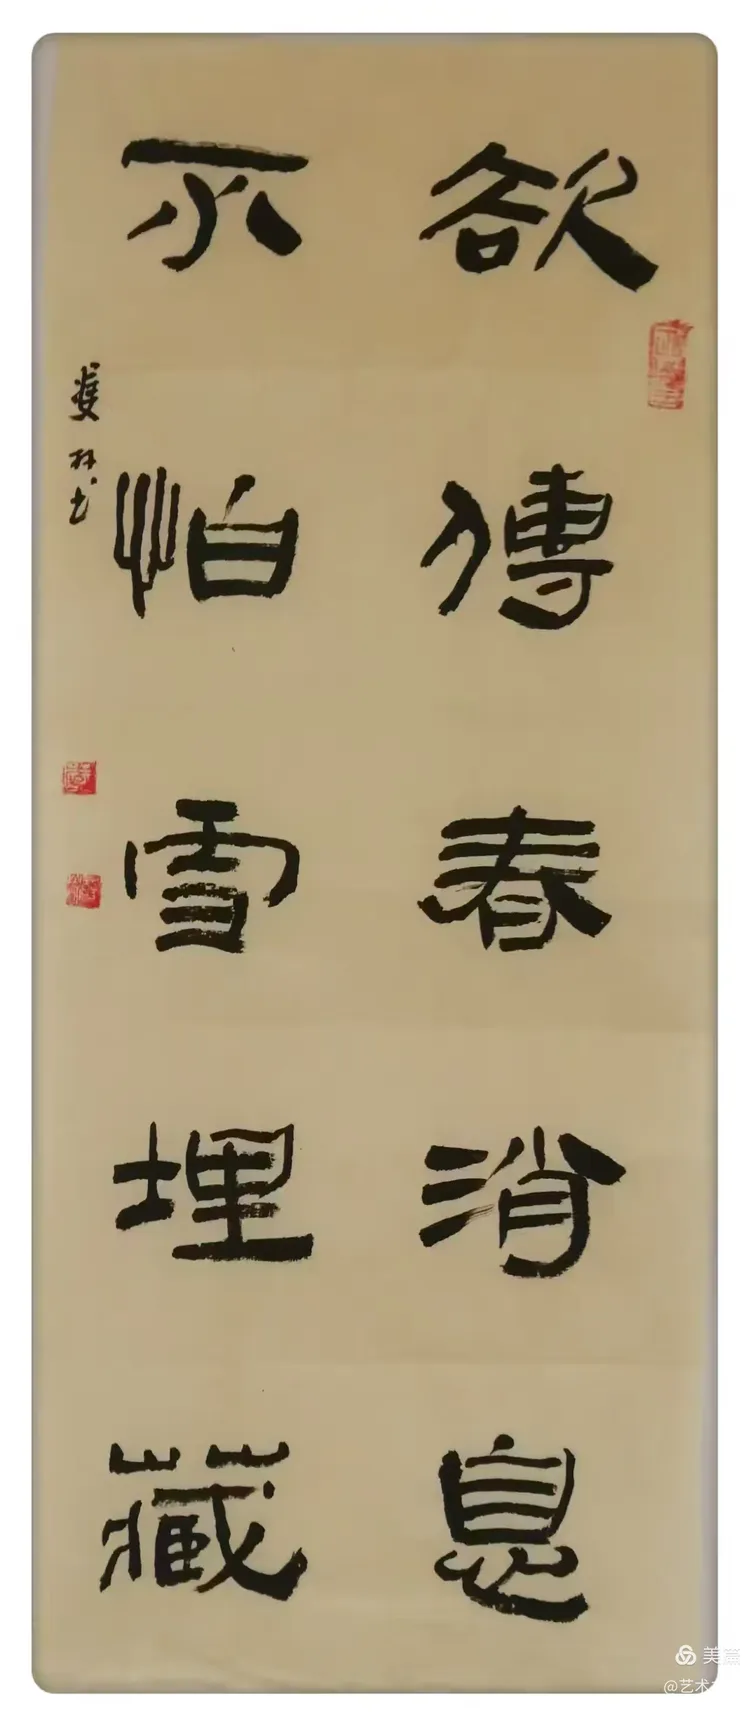 欲傳春消息
不怕雪埋藏
雙林书
美篇
@艺术